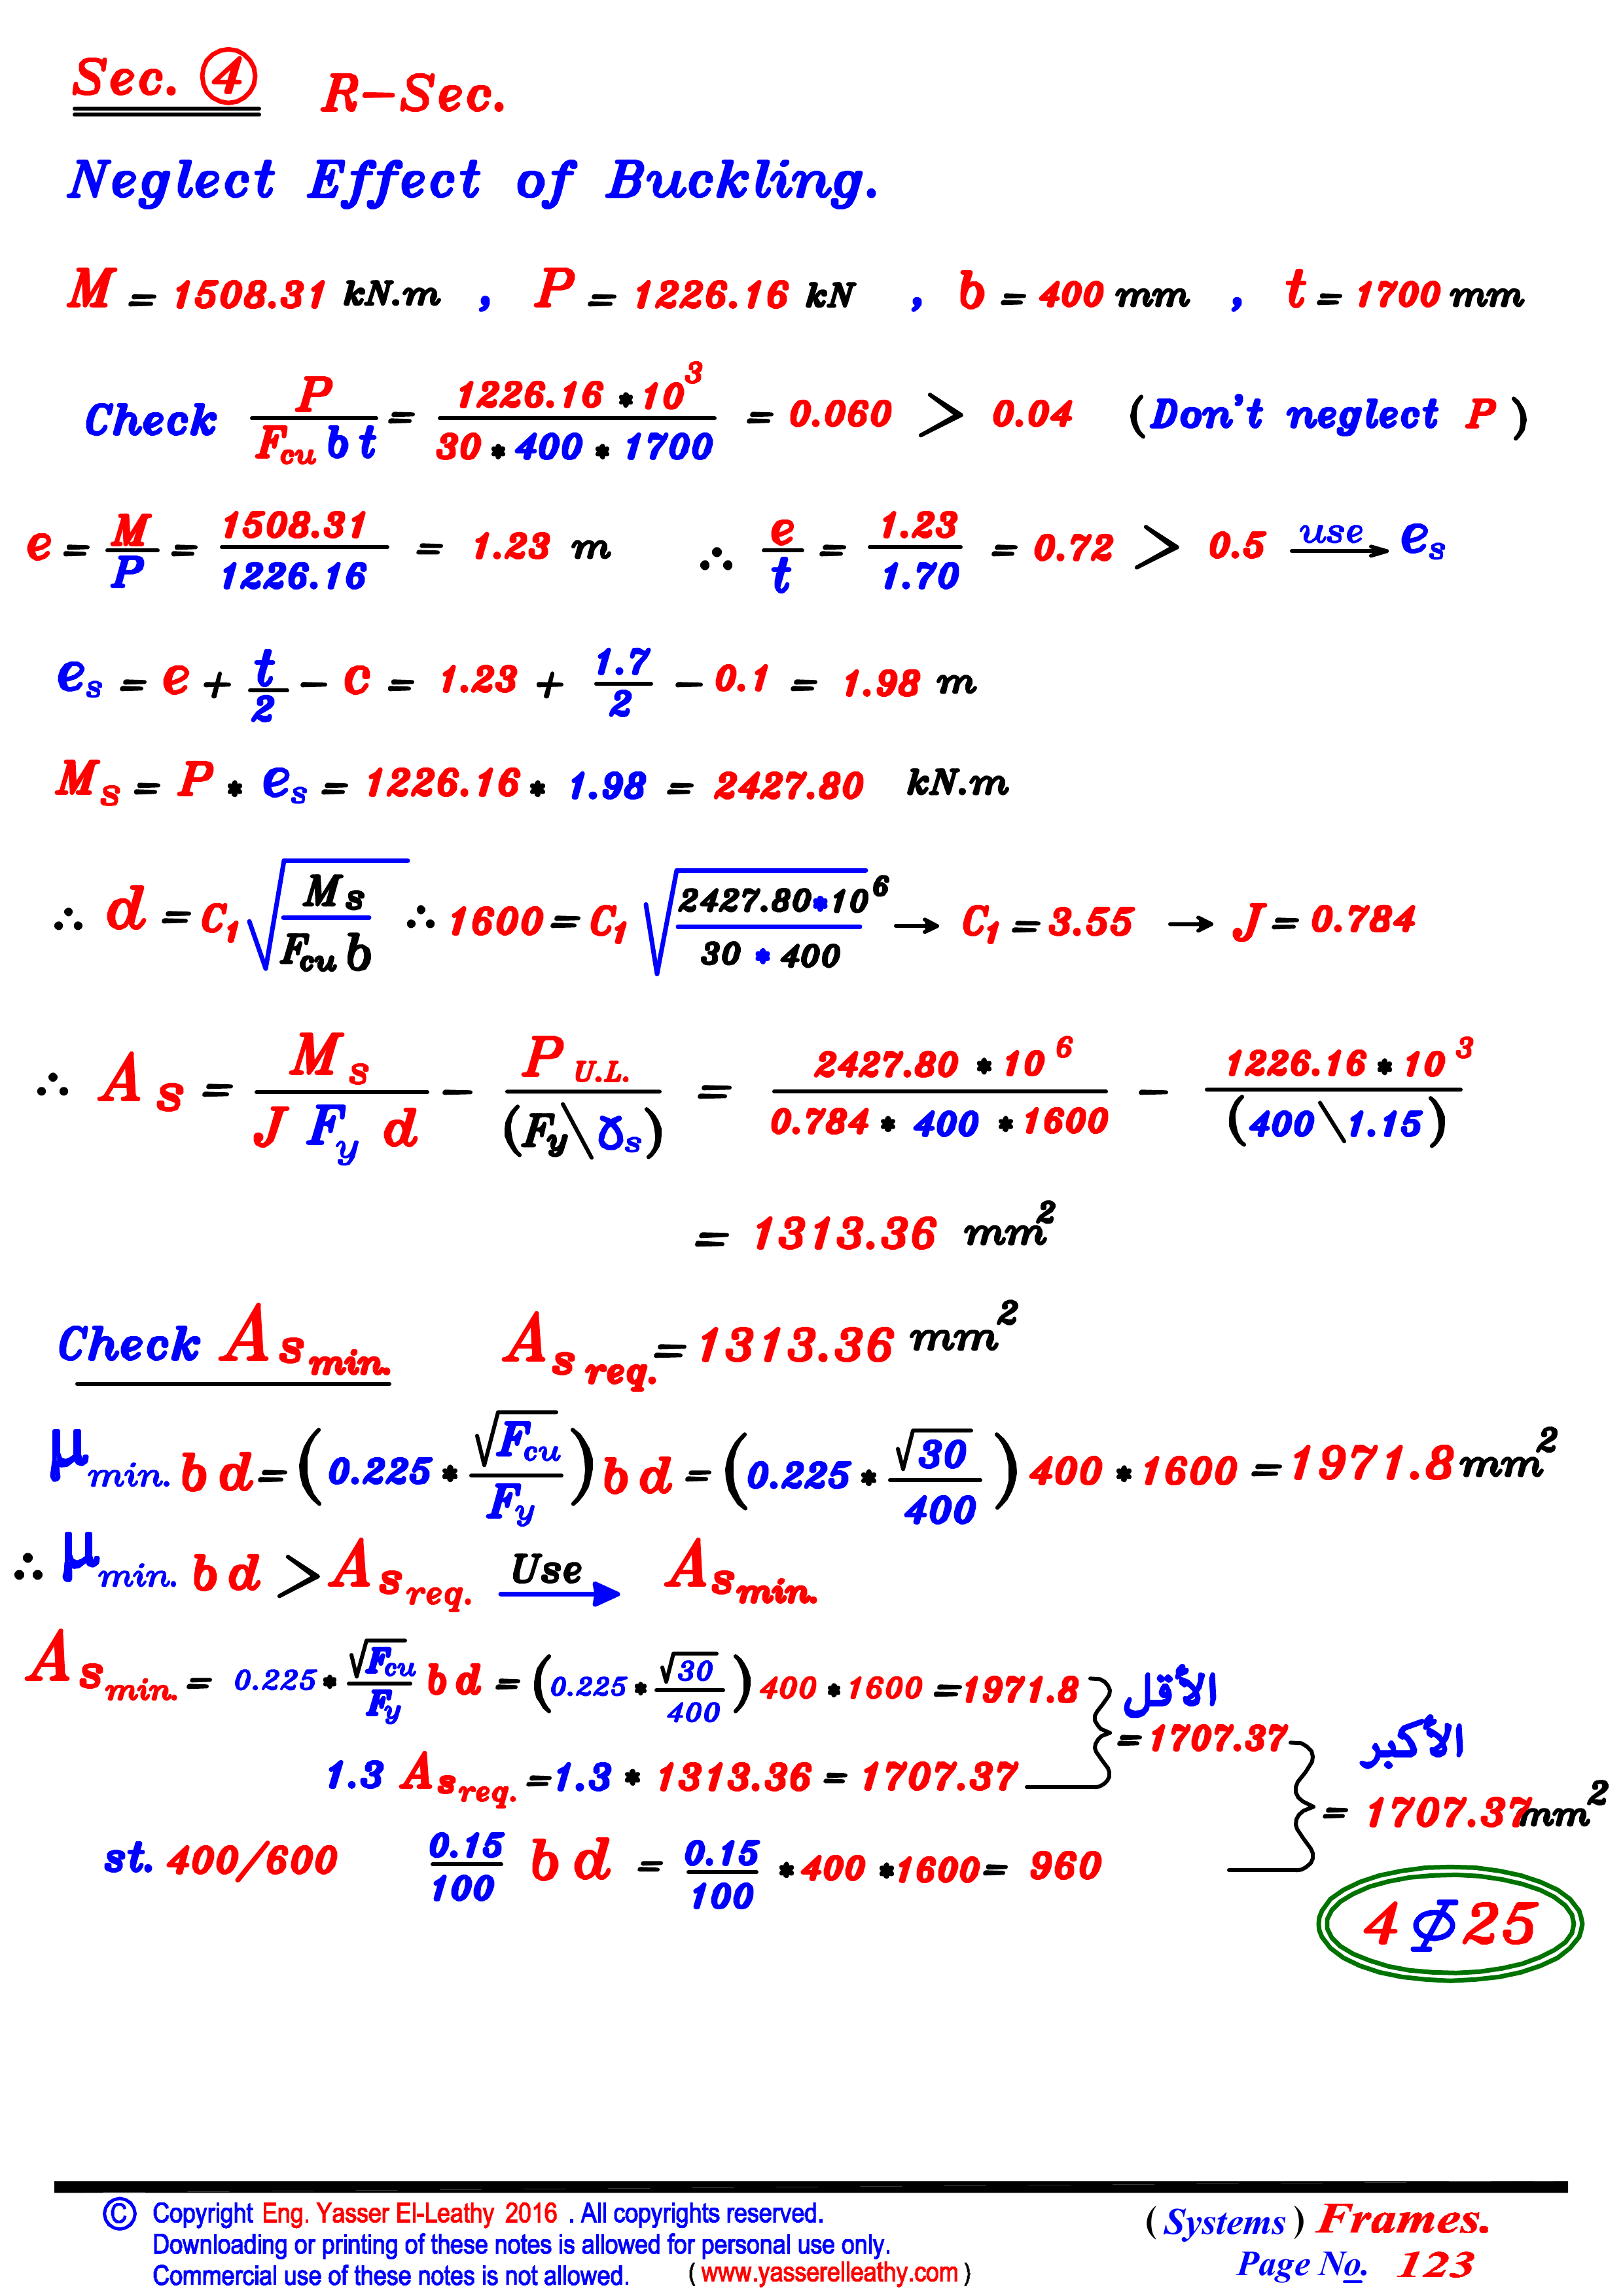 Sec. ④ R-Sec.
Neglect Effect of Buckling.
M = 1508.31 kN.m , P = 1226.16 kN , b = 400 mm , t = 1700 mm
Check P / (Fcu b t) = 1226.16 * 10^3 / (30 * 400 * 1700) = 0.060 > 0.04 (Don't neglect P)
e = M / P = 1508.31 / 1226.16 = 1.23 m ∴ e / t = 1.23 / 1.70 = 0.72 > 0.5 use → es
es = e + t / 2 - c = 1.23 + 1.7 / 2 - 0.1 = 1.98 m
Ms = P * es = 1226.16 * 1.98 = 2427.80 kN.m
∴ d = C1 √(Ms / (Fcu b)) ∴ 1600 = C1 √(2427.80*10^6 / (30 * 400)) → C1 = 3.55 → J = 0.784
∴ As = Ms / (J Fy d) - P U.L. / (Fy\γs) = 2427.80 * 10^6 / (0.784 * 400 * 1600) - 1226.16 * 10^3 / (400\1.15)
= 1313.36 mm²
Check As min. As req. = 1313.36 mm²
μ min. b d = (0.225 * √Fcu / Fy) b d = (0.225 * √30 / 400) 400 * 1600 = 1971.8 mm²
∴ μ min. b d > As req. Use → As min.
As min. = 0.225 * √Fcu / Fy b d = (0.225 * √30 / 400) 400 * 1600 = 1971.8 الأقل
= 1707.37 الأكبر
1.3 As req. = 1.3 * 1313.36 = 1707.37
= 1707.37 mm²
st. 400/600 0.15 / 100 b d = 0.15 / 100 * 400 * 1600 = 960
4 Φ 25
© Copyright Eng. Yasser El-Leathy 2016 . All copyrights reserved.
Downloading or printing of these notes is allowed for personal use only.
Commercial use of these notes is not allowed. ( www.yasserelleathy.com )
(Systems) Frames.
Page No. 123